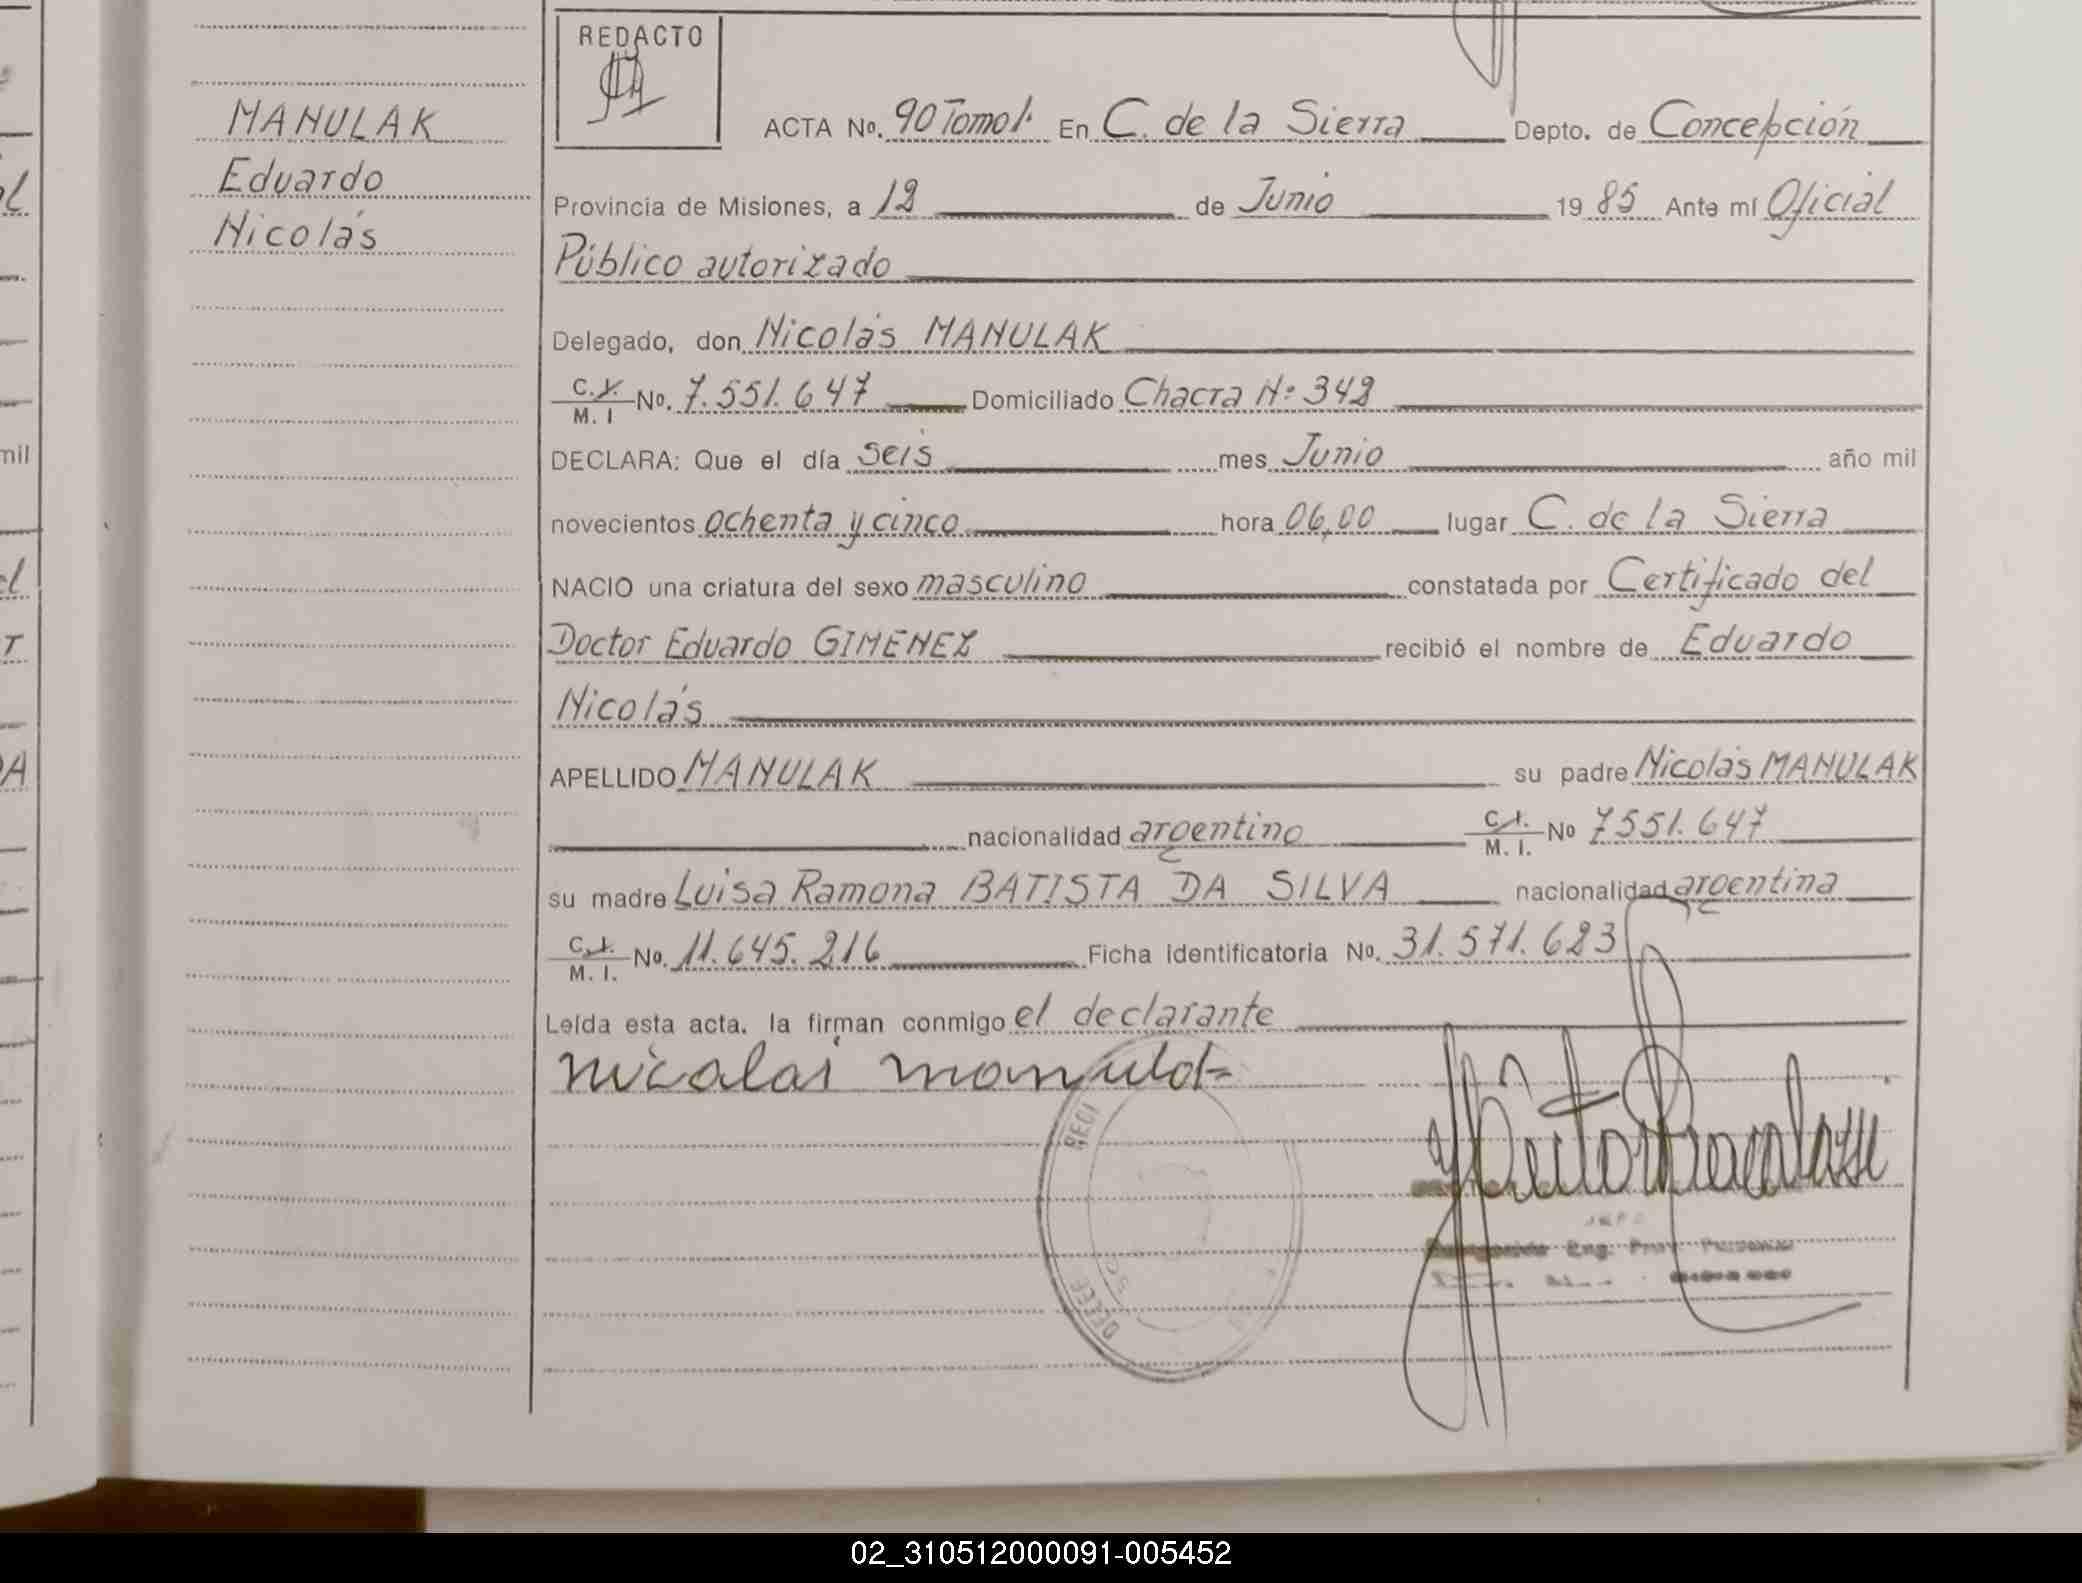 MANULAK
Eduardo
Nicolás
REDACTO
ACTA No. 90 Tomo I. En C. de la Sierra Depto. de Concepción
Provincia de Misiones, a 12 de Junio 19 85 Ante mí Oficial
Público autorizado
Delegado, don Nicolás MANULAK
C.I. M. I No. 7.551.647 Domiciliado Chacra Nº 342
DECLARA: Que el día seis mes Junio año mil
novecientos ochenta y cinco hora 06,00 lugar C. de la Sierra
NACIO una criatura del sexo masculino constatada por Certificado del
Doctor Eduardo GIMENEZ recibió el nombre de Eduardo
Nicolás
APELLIDO MANULAK su padre Nicolás MANULAK
nacionalidad argentino C.I. M. I. No 7551.647
su madre Luisa Ramona BATISTA DA SILVA nacionalidad argentina
C.I. M. I. No. 11.645.216 Ficha identificatoria No. 31.571.623
Leída esta acta, la firman conmigo el declarante
nicolas manulak
02_310512000091-005452